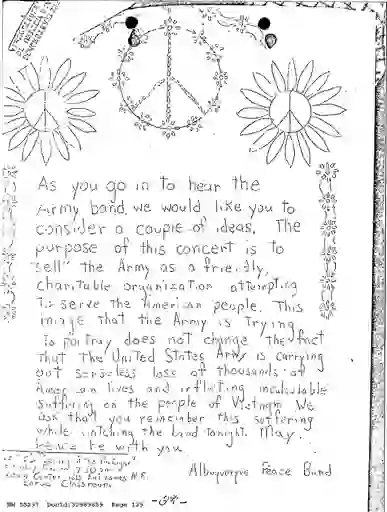 As you go in to hear the
Army band, we would like you to
consider a couple of ideas. The
purpose of this concert is to
"sell" the Army as a friendly,
charitable organization attempting
to serve the American people. This
image that the Army is trying
to portray does not change the fact
that the United States Army is carrying
out senseless loss of thousands of
American lives and inflicting incalculable
suffering on the people of Vietnam. We
ask that you remember this suffering
while watching the band tonight. May
peace be with you
Albuquerque Peace Band
NW 55297 DocId:32989655 Page 129